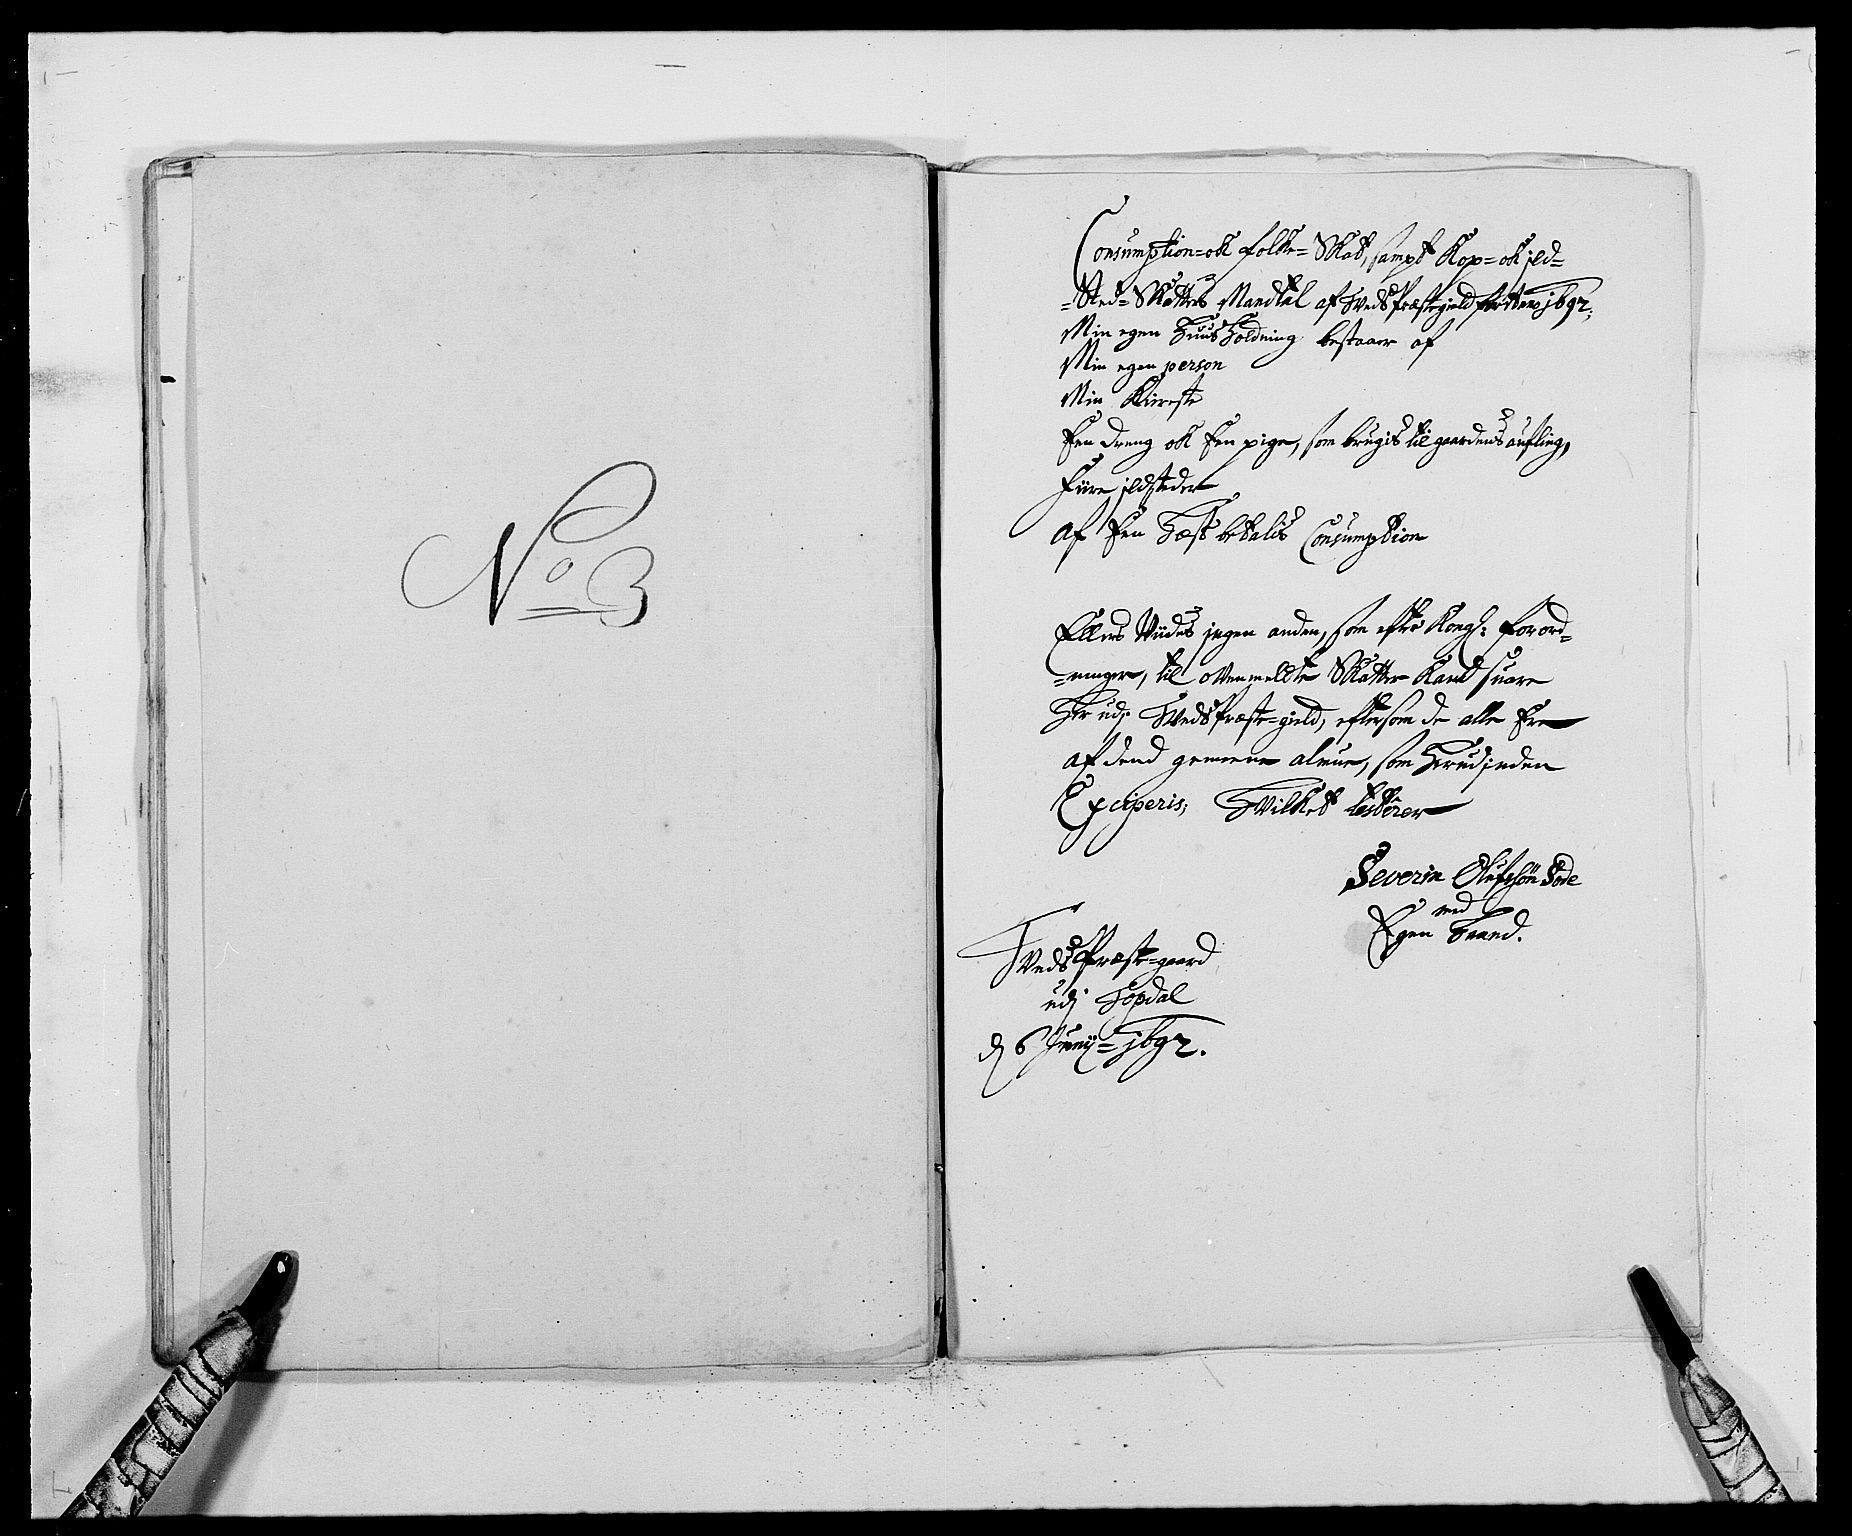 No 3
Consumption= ok folke= Skat, sampt Kop= ok jld=
=Sted= Skatters Mandtal af Tveds Præstegield for Anno 1692.
Min egen Huus Holdning bestaaer af
Min egen person
Min Kiereste
Een dreng ok Een pige, som brugis til gaardens aufling,
Fiire jldsteder
Af Een Hæst betalis Consumption
Ellers Viides jngen anden, som efter Kongl: forord=
=ninger, til ovenmeldte Skatter Kand suare
Her udj Tveds Præste=gield, eftersom de alle Ere
af dend gemeene almue, som Herudjnden
Exciperis; Hvilket testerer
Severin Olufsøn Bode
med
Egen Haand.
Tveds Præste=gaard
udj Topdal
d 6 Junij= 1692.